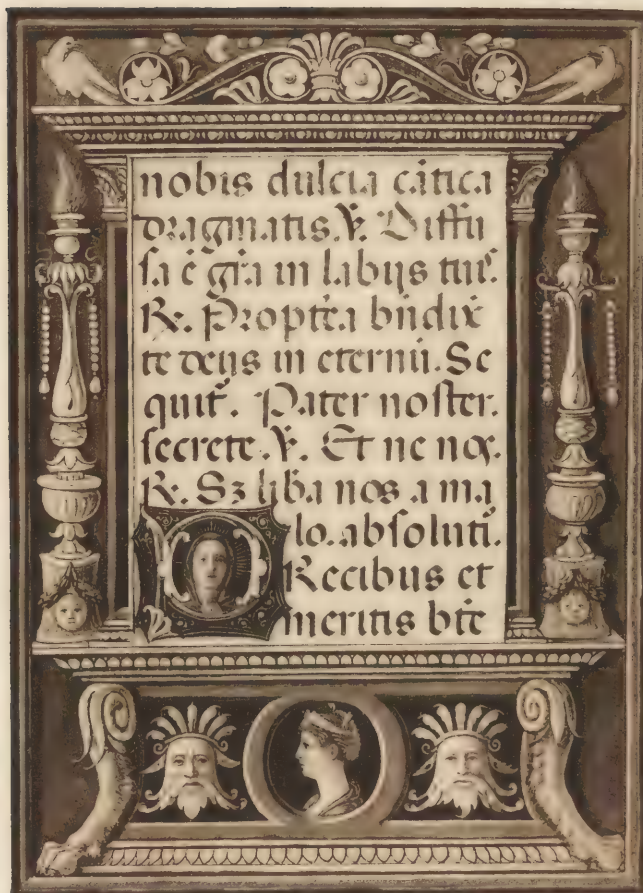 nobis dulcia cātica
dragmatis. ℣. Diffu
sa ē gr̄a in labijs tuis.
℟. Propt̄ea bn̄dix̄
te deus in eternū. Se
quit̄. Pater noster.
secrete. ℣. Et ne nos.
℟. Sꝫ lib̄a nos a ma
lo. absoluti.
Recibus et
meritis bt̄e